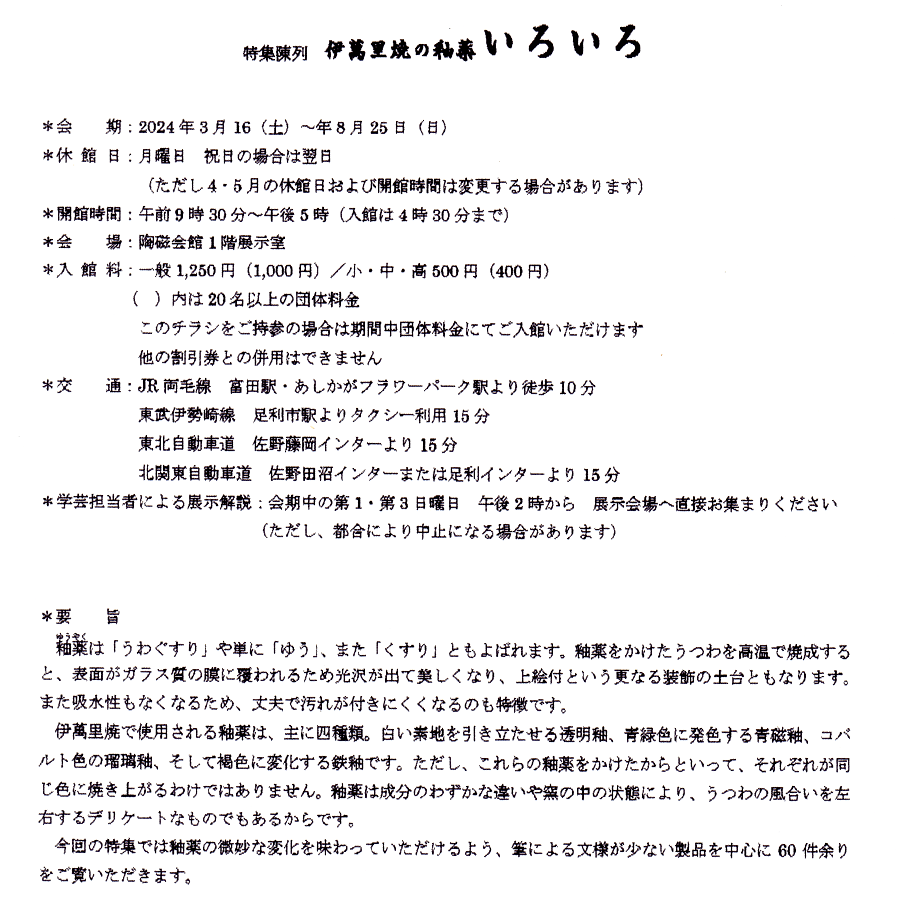 特集陳列　伊萬里焼の釉薬いろいろ
＊会　　期：2024年3月16（土）～年8月25日（日）
＊休 館 日：月曜日　祝日の場合は翌日
（ただし4・5月の休館日および開館時間は変更する場合があります）
＊開館時間：午前9時30分～午後5時（入館は4時30分まで）
＊会　　場：陶磁会館1階展示室
＊入 館 料：一般1,250円（1,000円）／小・中・高500円（400円）
（　）内は20名以上の団体料金
このチラシをご持参の場合は期間中団体料金にてご入館いただけます
他の割引券との併用はできません
＊交　　通：JR両毛線　富田駅・あしかがフラワーパーク駅より徒歩10分
東武伊勢崎線　足利市駅よりタクシー利用15分
東北自動車道　佐野藤岡インターより15分
北関東自動車道　佐野田沼インターまたは足利インターより15分
＊学芸担当者による展示解説：会期中の第1・第3日曜日　午後2時から　展示会場へ直接お集まりください
（ただし、都合により中止になる場合があります）
＊要　　旨
ゆうやく
釉薬は「うわぐすり」や単に「ゆう」、また「くすり」ともよばれます。釉薬をかけたうつわを高温で焼成する
と、表面がガラス質の膜に覆われるため光沢が出て美しくなり、上絵付という更なる装飾の土台ともなります。
また吸水性もなくなるため、丈夫で汚れが付きにくくなるのも特徴です。
伊萬里焼で使用される釉薬は、主に四種類。白い素地を引き立たせる透明釉、青緑色に発色する青磁釉、コバ
ルト色の瑠璃釉、そして褐色に変化する鉄釉です。ただし、これらの釉薬をかけたからといって、それぞれが同
じ色に焼き上がるわけではありません。釉薬は成分のわずかな違いや窯の中の状態により、うつわの風合いを左
右するデリケートなものでもあるからです。
今回の特集では釉薬の微妙な変化を味わっていただけるよう、筆による文様が少ない製品を中心に60件余り
をご覧いただきます。